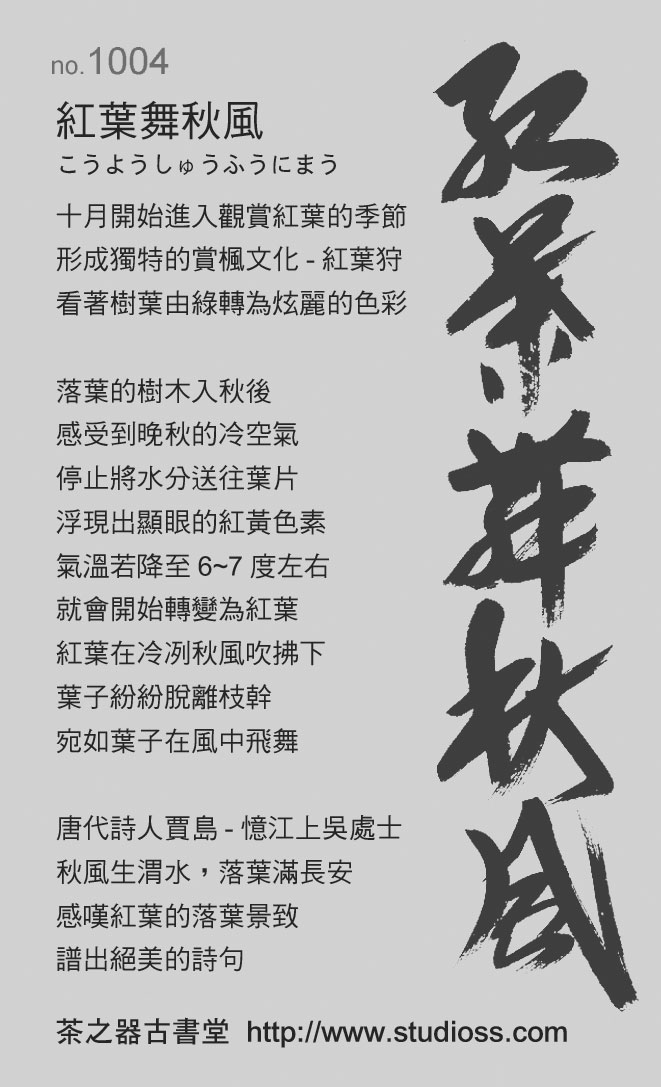 no.1004
紅葉舞秋風
こうようしゅうふうにまう
十月開始進入觀賞紅葉的季節
形成獨特的賞楓文化 - 紅葉狩
看著樹葉由綠轉為炫麗的色彩
落葉的樹木入秋後
感受到晚秋的冷空氣
停止將水分送往葉片
浮現出顯眼的紅黃色素
氣溫若降至 6~7 度左右
就會開始轉變為紅葉
紅葉在冷冽秋風吹拂下
葉子紛紛脫離枝幹
宛如葉子在風中飛舞
唐代詩人賈島 - 憶江上吳處士
秋風生渭水，落葉滿長安
感嘆紅葉的落葉景致
譜出絕美的詩句
茶之器古書堂 http://www.studioss.com
紅葉舞秋風